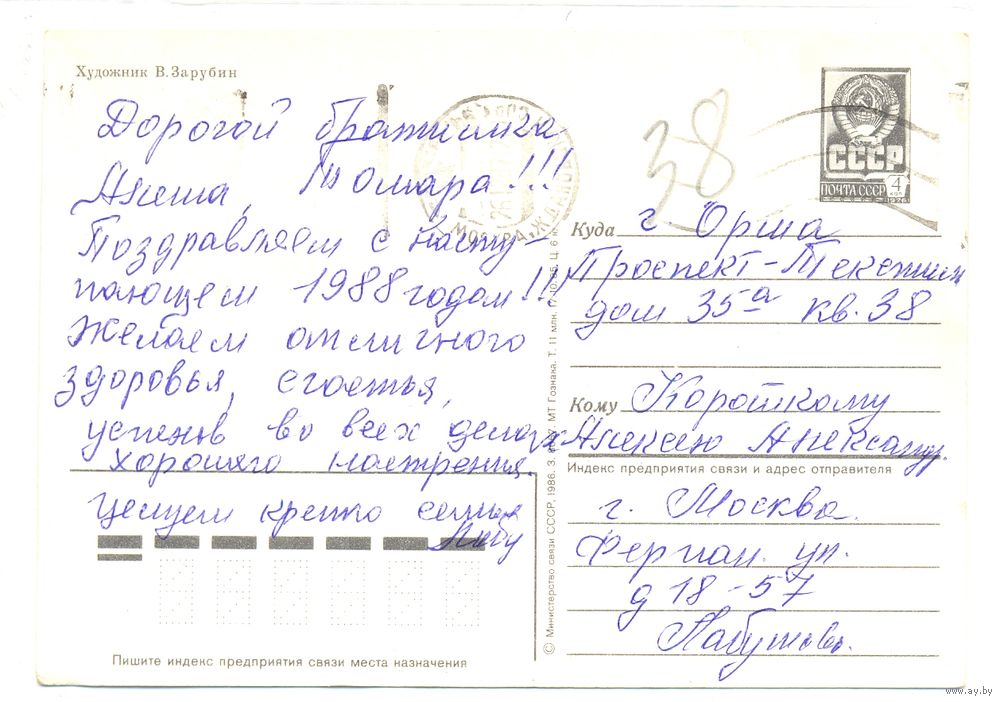 Художник В. Зарубин
Дорогой братишка
Алёша, Томара!!!
Поздравляем с насту-
пающем 1988 годом!!!
Желаем отличного
здоровья, счастья,
успехов во всех делах
хорошего настрения.
Целуем крепко семья
Пишите индекс предприятия связи места назначения
© Министерство связи СССР, 1986. З. МТ Гознака. Т. 11 млн. Ц. 6 к.
38
СССР
ПОЧТА СССР 4 коп
Куда г Орша
Проспект-Текстил
дом 35а кв. 38
Кому Короткому
Алексею Александр.
Индекс предприятия связи и адрес отправителя
г. Москва.
Ферган. ул.
д 18-57
www.ay.by